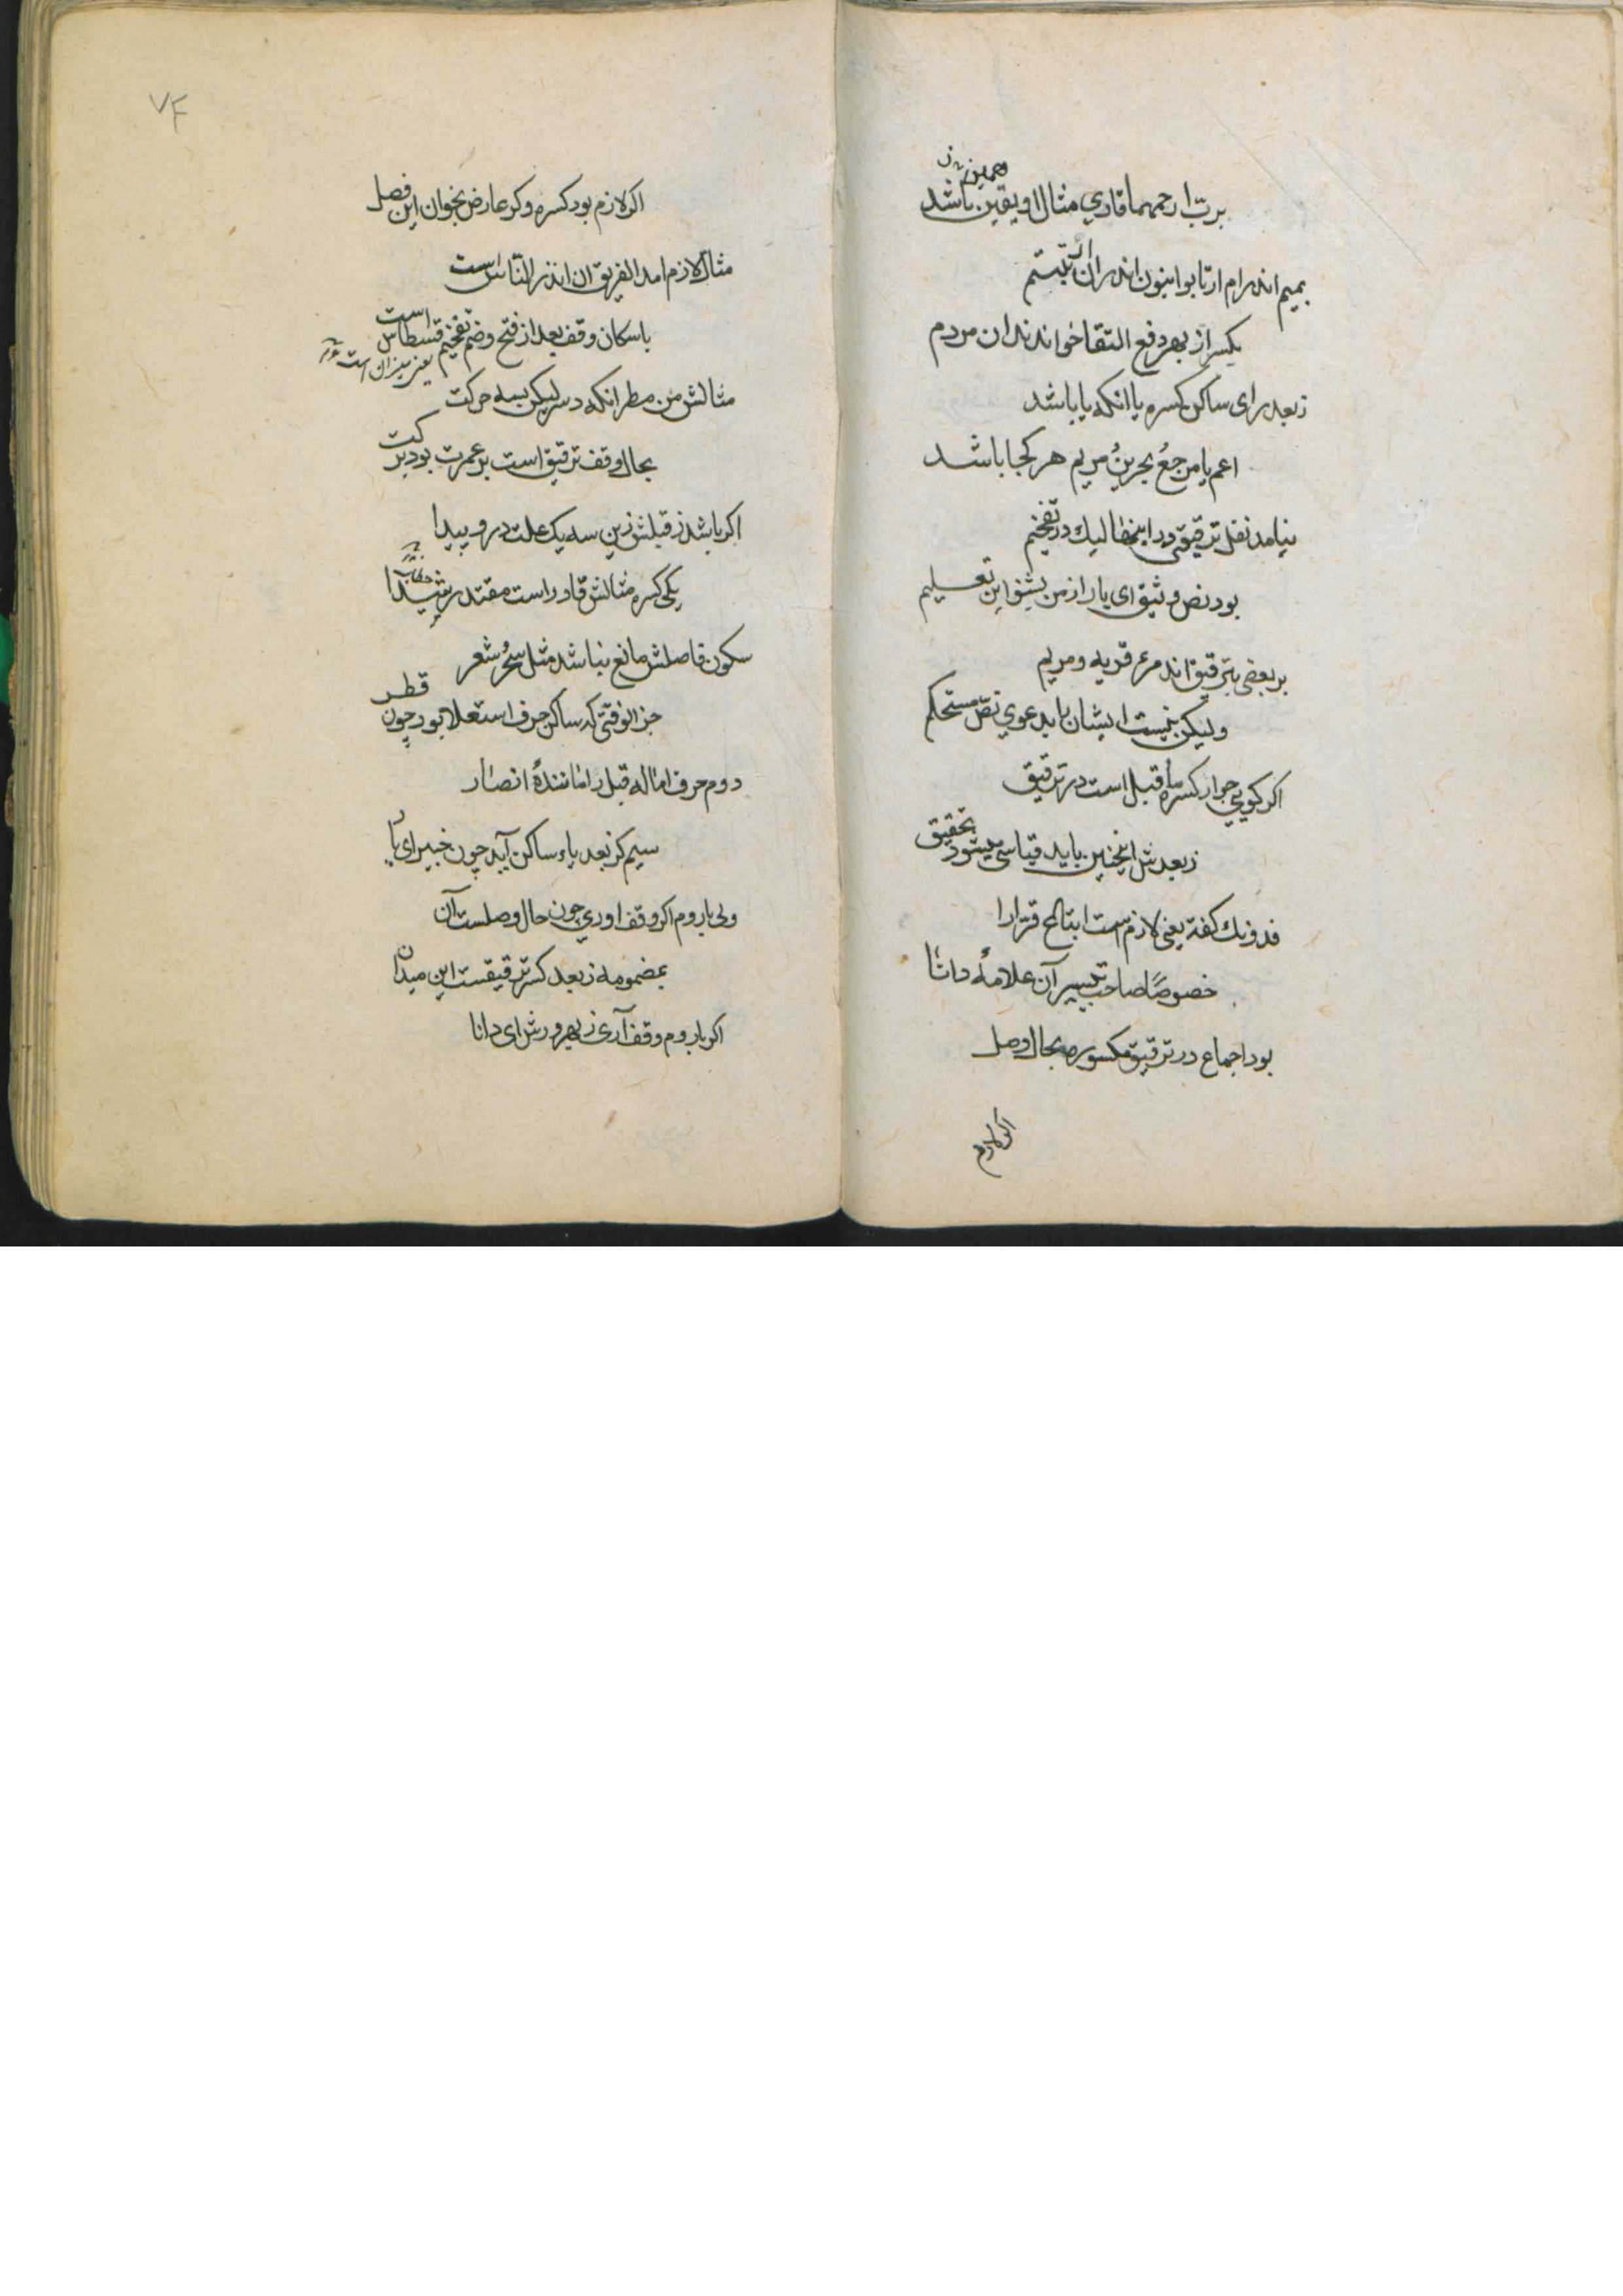 برب ارحمهما قاری مثال او یقین باشد
بمیم اندر ام ارتابوا بنون اندر ان ارتبتم
بکسر از بهر دفع التقا خواندند ان مردم
زبعد رای ساکن کسره یا انکه یا باشد
اعم یا مرجع بحرین مریم هر کجا باشد
نیامد نقل ترقیق ورا اینجا لیك در تفخیم
بود نص وثیق ای یار از من بشنو این تعلیم
بر بعضی بترقیق اند مرء قریه ومریم
ولیکن نیست ایشان باید عوی نص مستحکم
اکر کویی جوار کسره ما قبل است در ترقیق
زبعدش اینچنین باید قیاسی میشود تحقیق
فدونك کفته یعنی لازم است ابتالح قرارا
خصوصًا صاحب تیسیر آن علامهٔ دانا
بود اجماع در ترقیق مکسوره بحال وصل
اکر لازم
۷۴
اکر لازم بود کسره وکر عارض بخوان این فصل
مثال لازم امد الفریق ان انذر الناس است
باسکان وقف بعد از فتح وضم تفخیم قسطاس است
یعنی میزان است
مثالش من مطر انکه دسر لیکن بسه حرکت
بحال وقف ترقیق است بر عمرت بود برکت
اکر باشد زقبلش زین سه یک علت درو پیدا
یکی کسره مثالش قادر است مقتدر
سکون فاصلش مانع نباشد مثل سحر شعر
جز الوقتی که ساکن حرف استعلا بود چون قطر
دوم حرف اماله قبل را مانندهٔ انصار
سیم کز بعد یاء ساکن آید چون خبیر ای یار
ولی با روم اکر وقف اوری چون حال وصلست آن
بمضمومه زبعد کسر ترقیقست این میدان
اکر با روم وقف آری زبهر ورش ای دانا